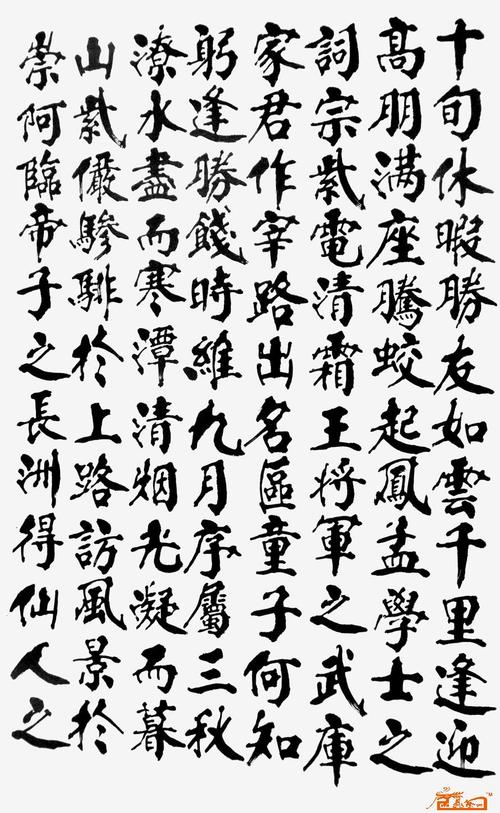 十旬休暇勝友如雲千里逢迎
高朋满座騰蛟起鳳孟學士之
詞宗紫電清霜王将軍之武庫
家君作宰路出名區童子何知
躬逢勝餞時維九月序屬三秋
潦水盡而寒潭清烟光凝而暮
山紫儼驂騑於上路訪風景於
崇阿臨帝子之長洲得仙人之